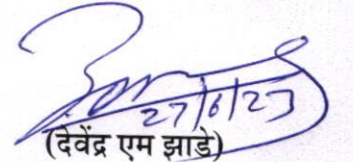 27/6/23
(देवेंद्र एम झाडे)